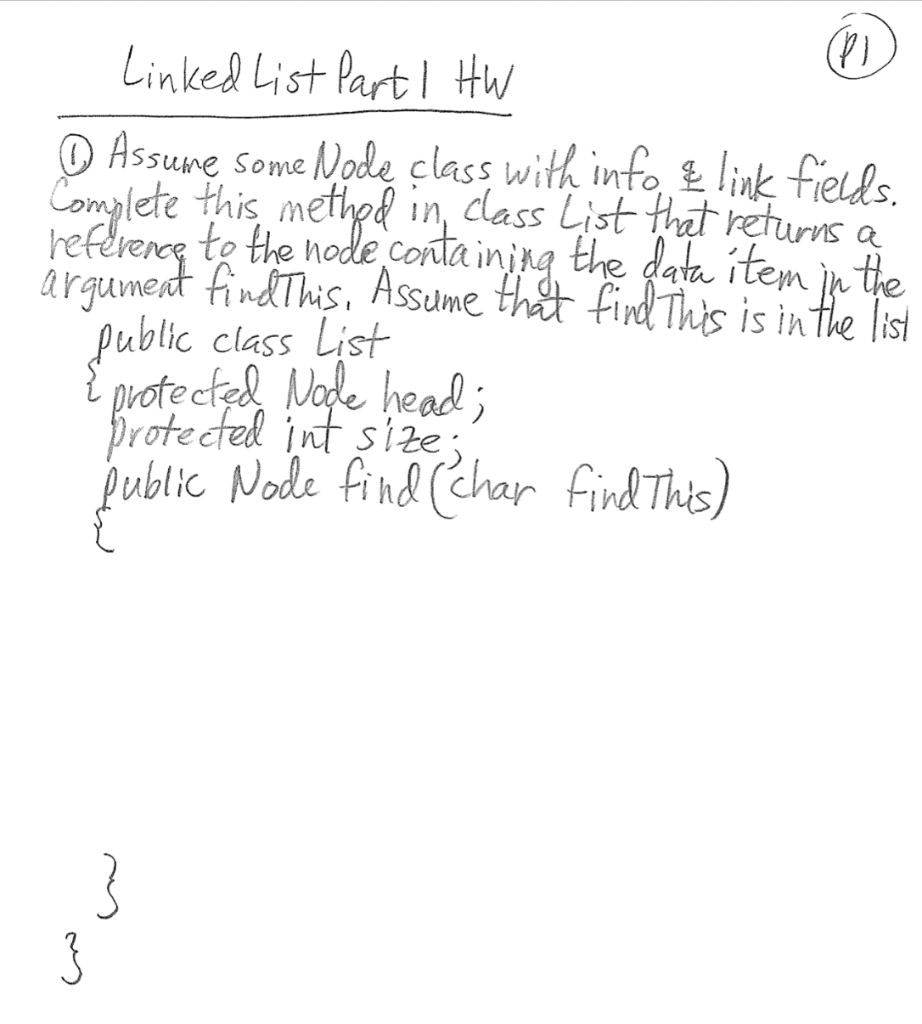 P1
Linked List Part 1 HW
① Assume some Node class with info & link fields.
Complete this method in class List that returns a
reference to the node containing the data item in the
argument findThis. Assume that findThis is in the list
public class List
{ protected Node head;
protected int size;
public Node find (char findThis)
{
}
}